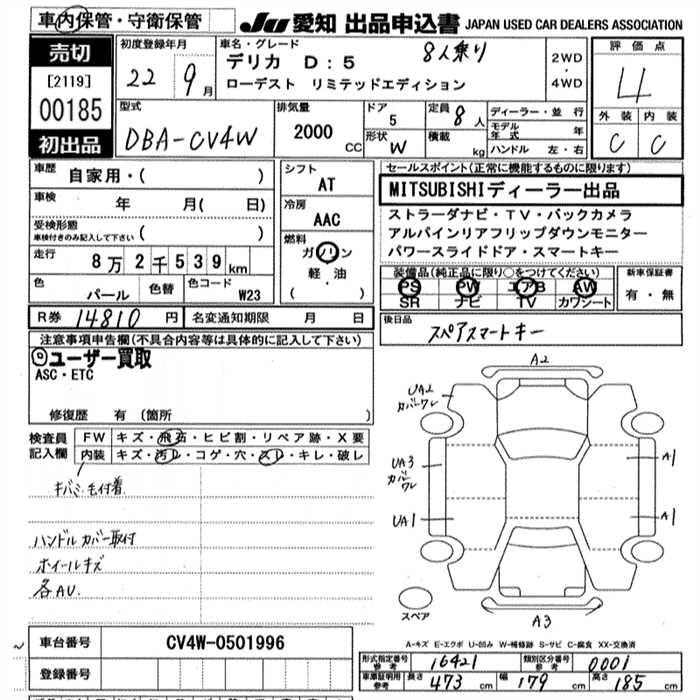 車内保管・守衛保管
JU 愛知 出品申込書 JAPAN USED CAR DEALERS ASSOCIATION
売切
[2119]
00185
初出品
初度登録年月
22年 9月
車名・グレード
デリカ D:5 8人乗り
ローデスト リミテッドエディション
2WD
・
4WD
評価点
4
外装 内装
C C
型式
DBA-CV4W
排気量
2000 CC
ドア
5
形状
W
定員 8人
積載 kg
ディーラー・並行
モデル年式 年
ハンドル 左・右
車歴 自家用・( )
車検 年 月( 日)
受検形態
車検付きのみ記入して下さい ( )
走行 8万2千539km
色 パール 色替 色コード W23
シフト
AT
冷房
AAC
燃料
ガソリン
軽油
( ・ )
セールスポイント(正常に機能するものに限ります)
MITSUBISHIディーラー出品
ストラーダナビ・TV・バックカメラ
アルパインリアフリップダウンモニター
パワースライドドア・スマートキー
装備品(純正品に限り○をつけてください)
PS PW エアB AW
SR ナビ TV カワシート
新車保証書
有・無
R券 14810円 名変通知期限 月 日
後日品
スペアスマートキー
注意事項申告欄(不具合内容等は具体的に記入して下さい)
ユーザー買取
ASC・ETC
修復歴 有(箇所 )
検査員記入欄
FW キズ・飛石・ヒビ割・リペア跡・X要
内装 キズ・汚レ・コゲ・穴・スレ・キレ・破レ
キバミ 毛付着
ハンドルカバー取付
ホイールキズ
各AU
A2
UA2
カバーワレ
UA3
カバーワレ
UA1
A1
A1
スペア
A3
A-キズ E-エクボ U-凹み W-補修跡 S-サビ C-腐食 XX-交換済
車台番号 CV4W-0501996
登録番号
形式指定番号参考 16421 類別区分番号参考 0001
車庫証明用参考 長さ 473cm 幅 179cm 高さ 185cm